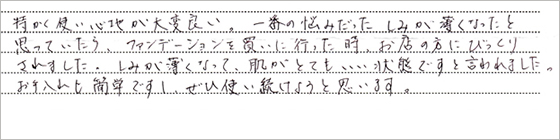 時かく使い心地が大変良い。一番の悩みだったしみが薄くなったと
思っていたら、ファンデーションを買いに行った時、お店の方にびっくり
されました。しみが薄くなって、肌がとてもいい状態ですと言われました。
お手入れも簡単ですし、ぜひ使い続けようと思います。